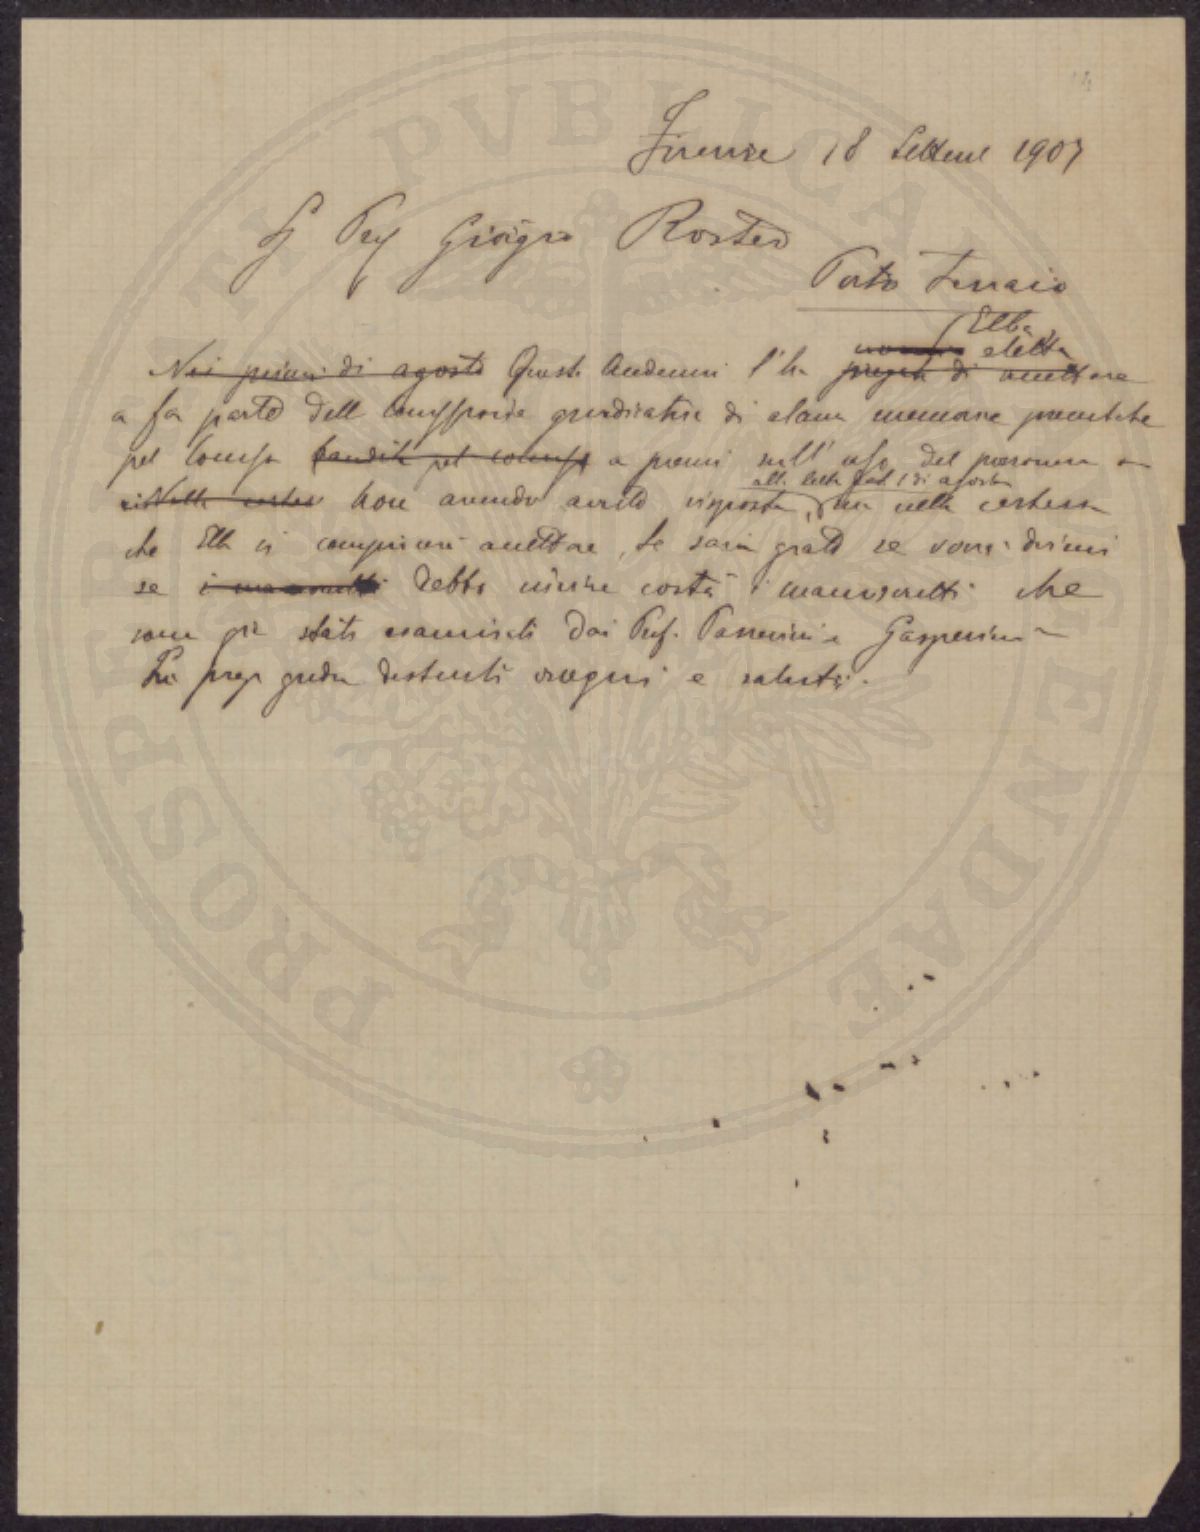 Firenze 18 Settem 1907
Prof Giorgio Roster
Porto Ferraio
Elba
eletta
Nei primi di agosto Questa l'ha pregata di accettare
a far parte dell giudicatrice di alcune memorie presentate
pel bandito pel concorso a premi sull' uso del
alla lett del 1 di agosto
Non avendo avuto risposta, ma nella certezza
che Ella si accettare, Le sarei grato se vorrà dirmi
se i manoscritti debbo inviare costà i manoscritti che
sono già stati esaminati dai Prof. Passerini e Gasperini
La prego gradire distinti ossequi e saluti.
PROSPERITATI PVBLICAE AVGENDAE